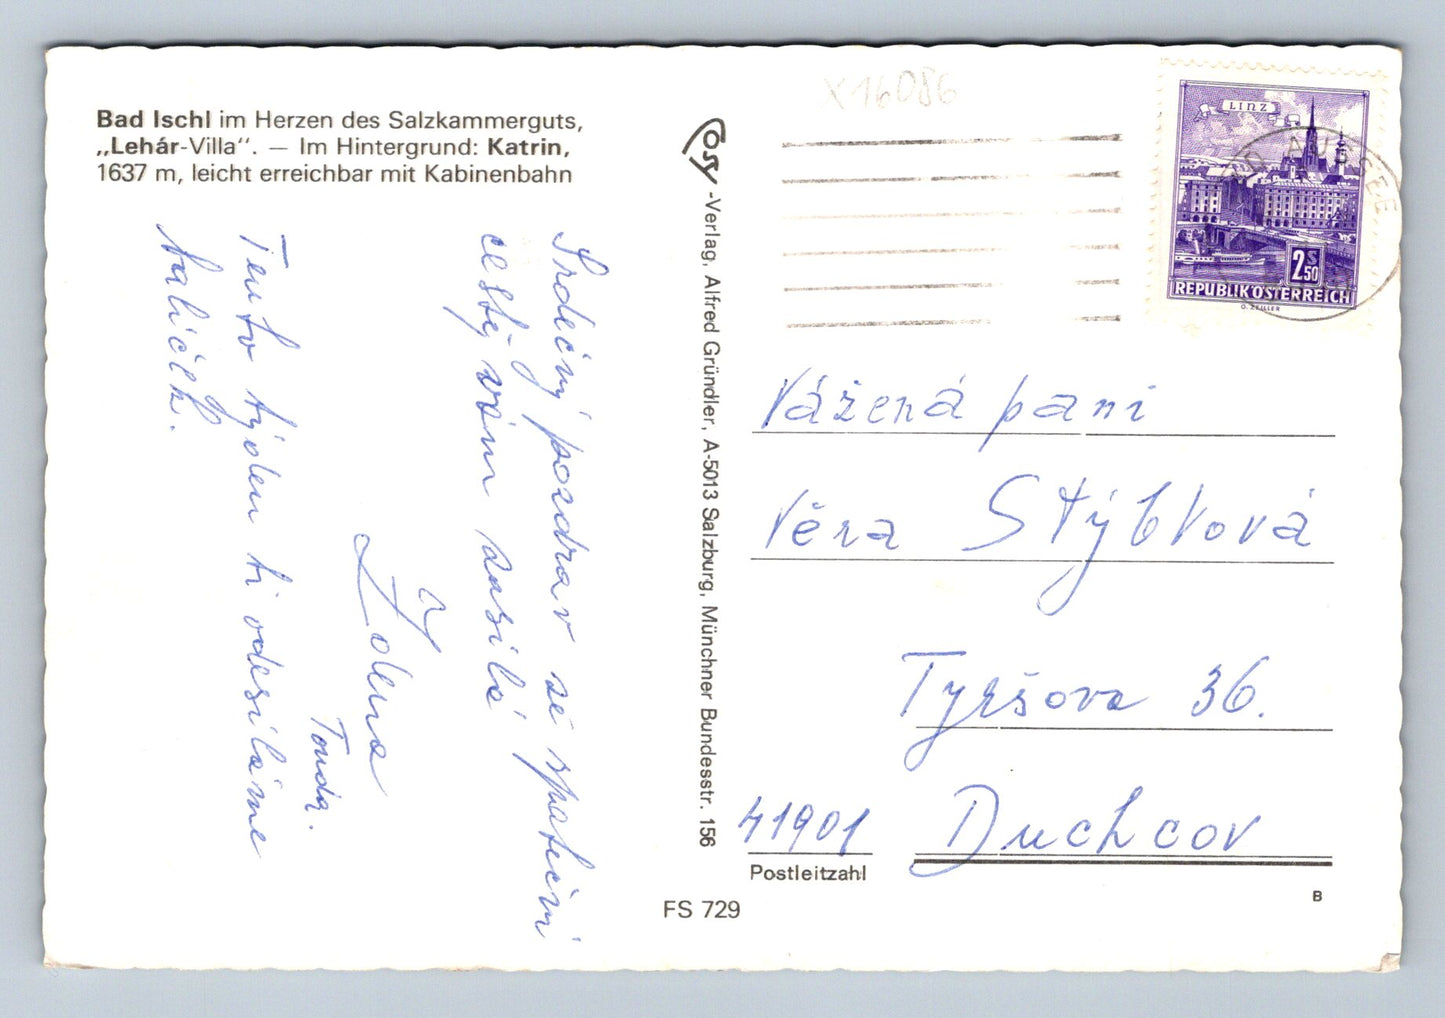 Bad Ischl im Herzen des Salzkammerguts,
„Lehár-Villa“. — Im Hintergrund: Katrin,
1637 m, leicht erreichbar mit Kabinenbahn
Srdečný pozdrav ze zpáteční
cesty vám zasílá
Zdena
Tonda.
Tento týden ti odesíláme
balíček.
Cosy-Verlag, Alfred Gründler, A-5013 Salzburg, Münchner Bundesstr. 156
FS 729
X16086
LINZ
2 S 50
REPUBLIK ÖSTERREICH
O. ZEILLER
BAD AUSSEE
Vážená paní
Věra Stýblová
Tyršova 36.
41901 Duchcov
Postleitzahl
B